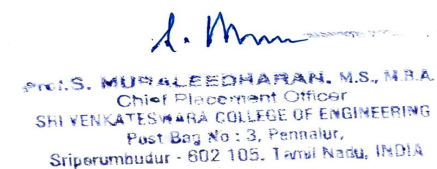 Prof.S. MURALEEDHARAN. M.S., M.B.A.
Chief Placement Officer
SRI VENKATESWARA COLLEGE OF ENGINEERING
Post Bag No : 3, Pennalur,
Sriperumbudur - 602 105. Tamil Nadu, INDIA